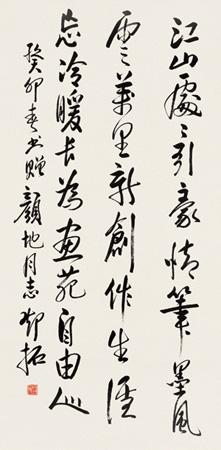 江山處々引豪情筆墨風
雲萬里新創作生涯
忘冷暖長為畫苑自由人
癸卯春書贈顏地同志鄧拓